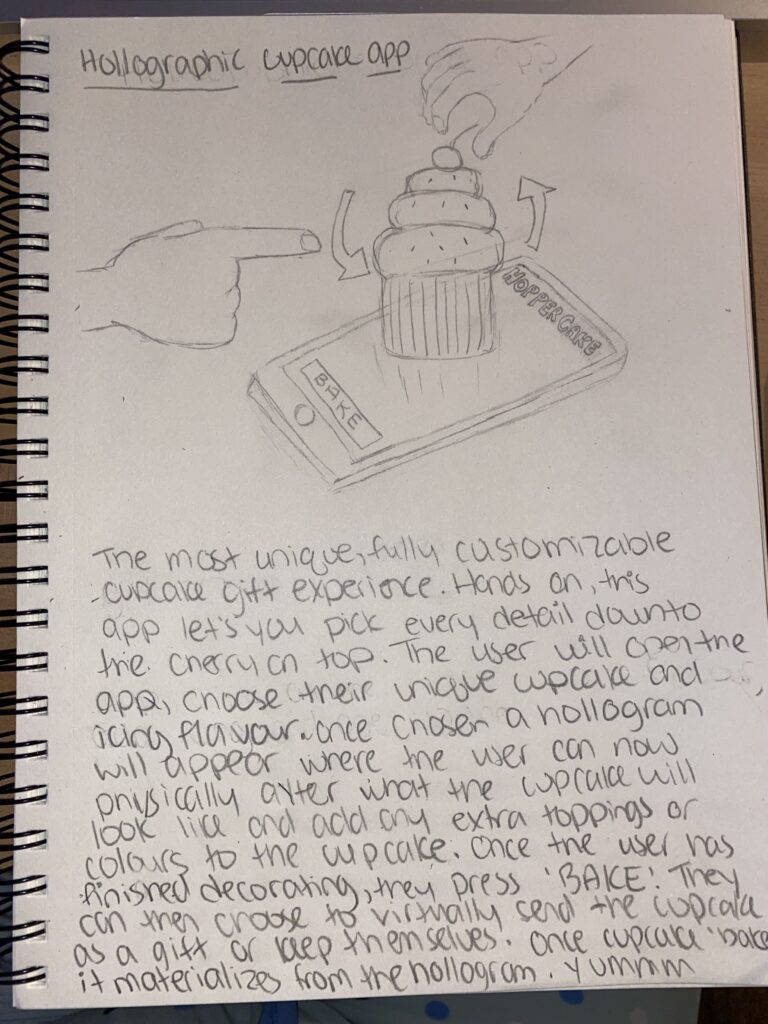 Hollographic cupcake app
HOPPER CAKE
BAKE
The most unique, fully customizable
cupcake gift experience. Hands on, this
app let's you pick every detail down to
the cherry on top. The user will open the
app, choose their unique cupcake and
icing flavour. once chosen a hollogram
will appear where the user can now
physically alter what the cupcake will
look like and add any extra toppings or
colours to the cupcake. Once the user has
finished decorating, they press 'BAKE'. They
can then choose to virtually send the cupcake
as a gift or keep themselves. Once cupcake 'bake
it materializes from the hollogram. Yummm